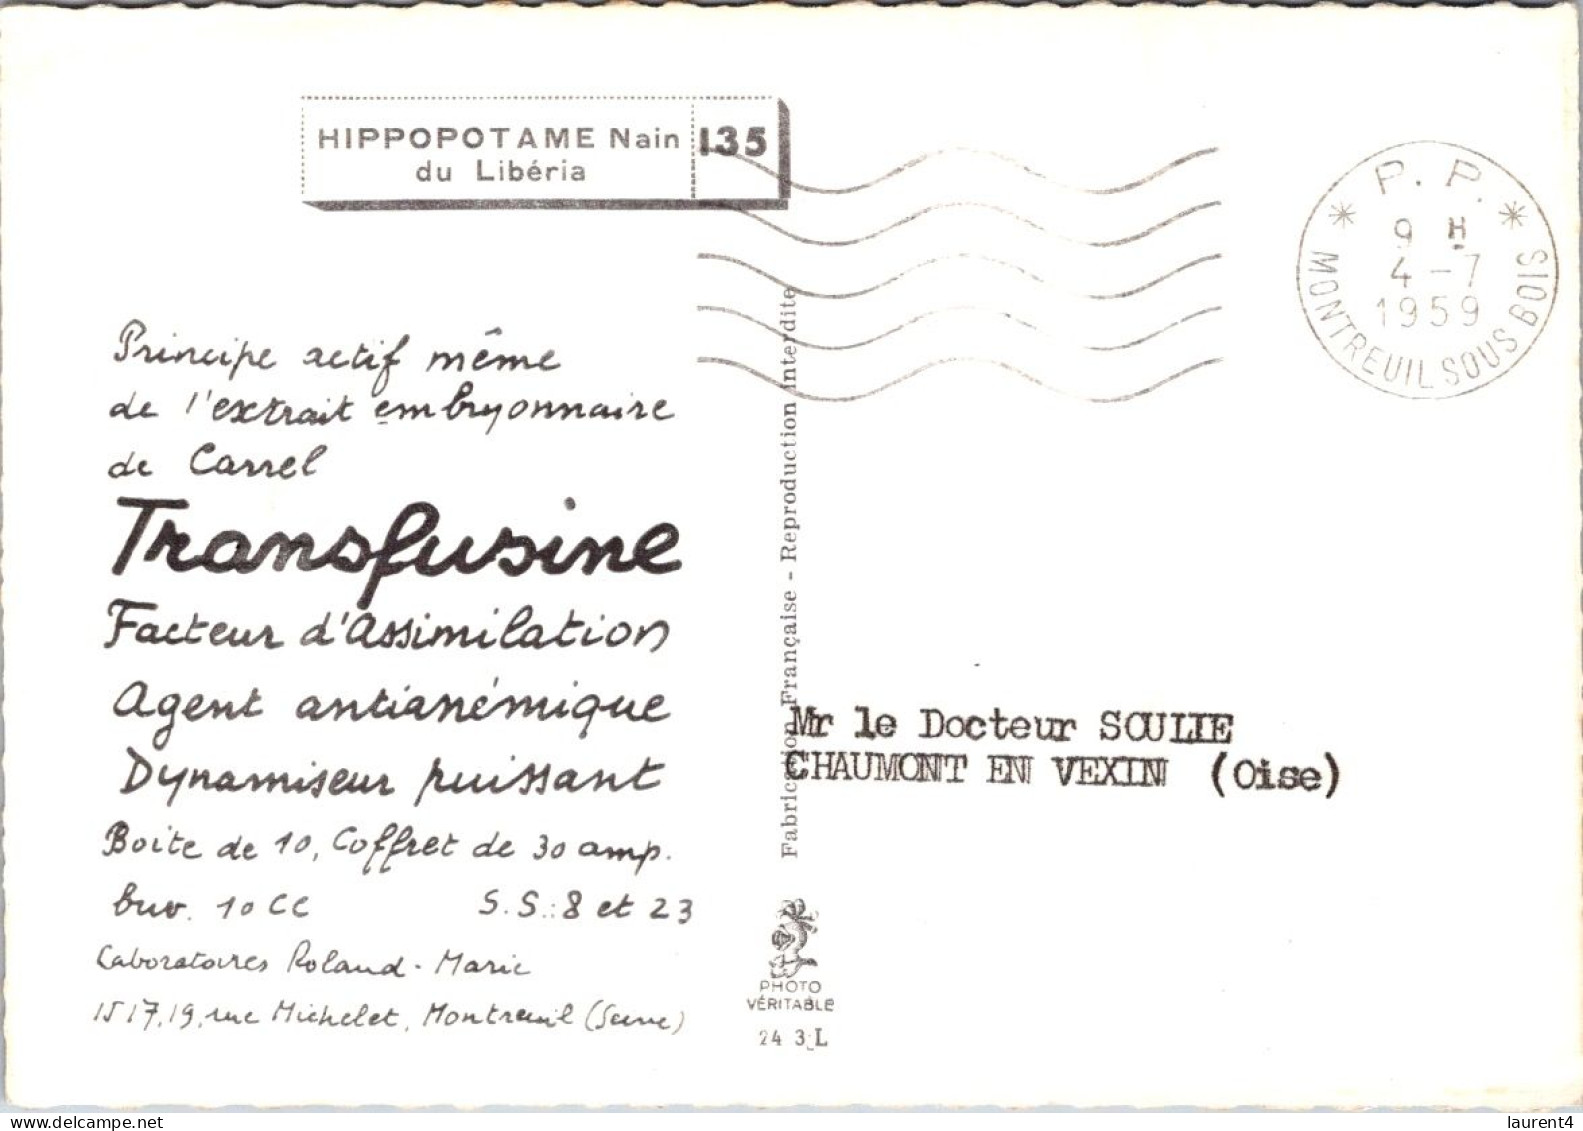 HIPPOPOTAME Nain 135
du Libéria
P. P.
9 H
4 - 7
1959
MONTREUIL SOUS BOIS
Principe actif même
de l'extrait embryonnaire
de Carrel
Transfusine
Facteur d'Assimilation
Agent antianémique
Dynamiseur puissant
Boite de 10, Coffret de 30 amp.
buv. 10 CC S.S.: 8 et 23
Laboratoires Roland-Marie
15 17, 19, rue Michelet, Montreuil (Seine)
Fabrication Française - Reproduction interdite
Mr le Docteur SOULIE
CHAUMONT EN VEXIN (Oise)
PHOTO
VÉRITABLE
24 3 L
delcampe.net
laurent4